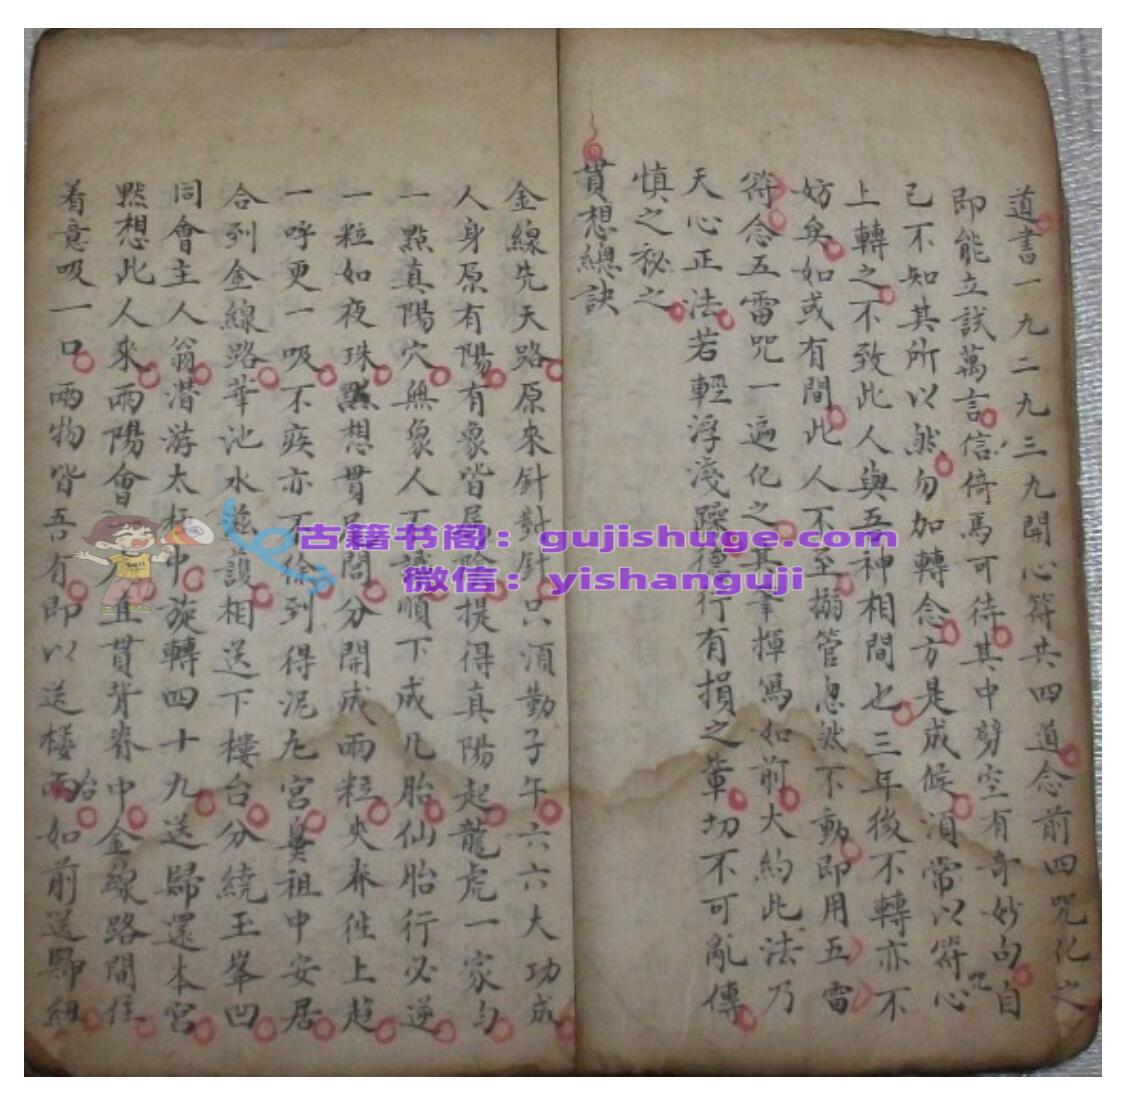 道書一九二九三九開心符共四道念前四咒化之
即能立試萬言信倚馬可待其中劈空有奇妙句自
己不知其所以然勿加轉念方是成候須常以符咒心
上轉之不致此人與五神相間也三年後不轉亦不
妨矣如或有間此人不至搦管忽然不動即用五雷
符念五雷咒一遍化之其拿揮寫如前大約此法乃
天心正法若輕浮淺躁德行有損之輩切不可亂傳
慎之秘之
貫想總訣
金線先天路原來針對針只須勤子午六六大功成
人身原有陽有象皆屬陰提得真陽起龍虎一家勻
一點真陽穴無象人不識順下成凡胎仙胎行必逆
一粒如夜珠默想貫尾閭分開成兩粒夾脊徃上超
一呼更一吸不疾亦不徐到得泥丸宮與祖中安居
合列金線路華池水護相送下樓台分繞玉峯凹
同會主人翁潜游太極中旋轉四十九送歸還本宮
默想此人來兩陽會且貫背脊中金線路間住
着意吸一口兩物皆吾有即以送樓台兩如前送歸
古籍书阁：gujishuge.com
微信：yishanguji